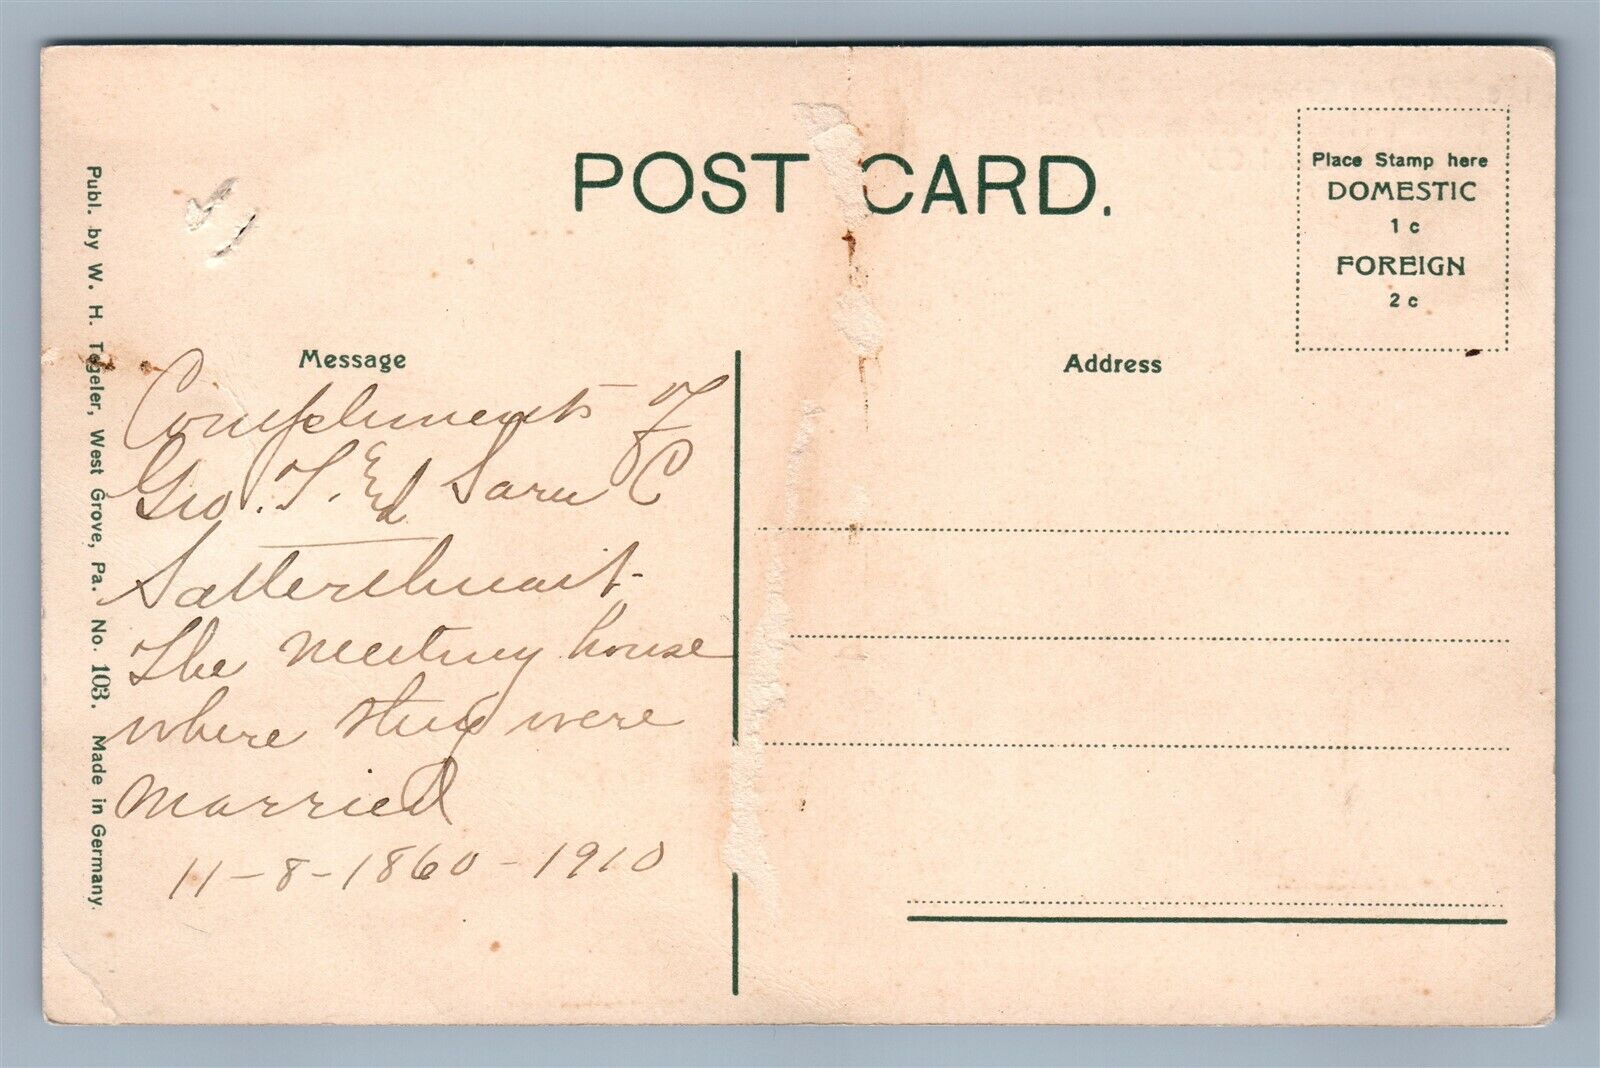 POST CARD.
Place Stamp here
DOMESTIC
1 c
FOREIGN
2 c
Message
Address
Compliments of
Geo. T. & Sara C
Satterthwait-
The meeting house
where they were
married
11-8-1860-1910
Publ. by W. H. Tegeler, West Grove, Pa. No. 103. Made in Germany.